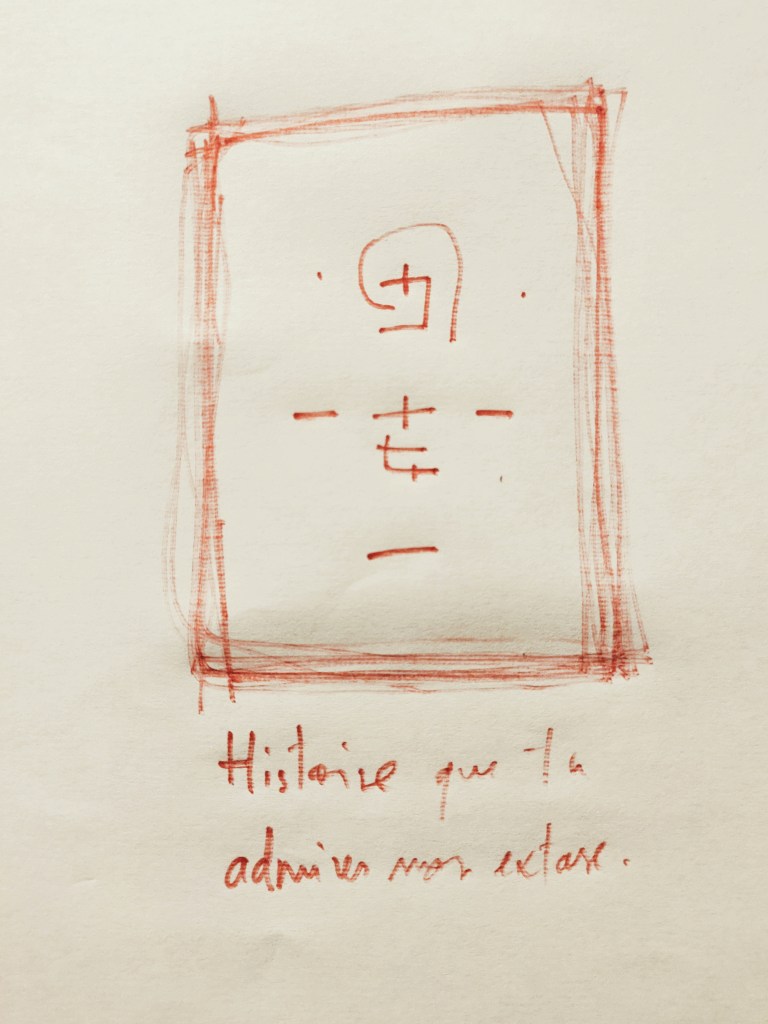 Histoire que tu
admires mon extase.